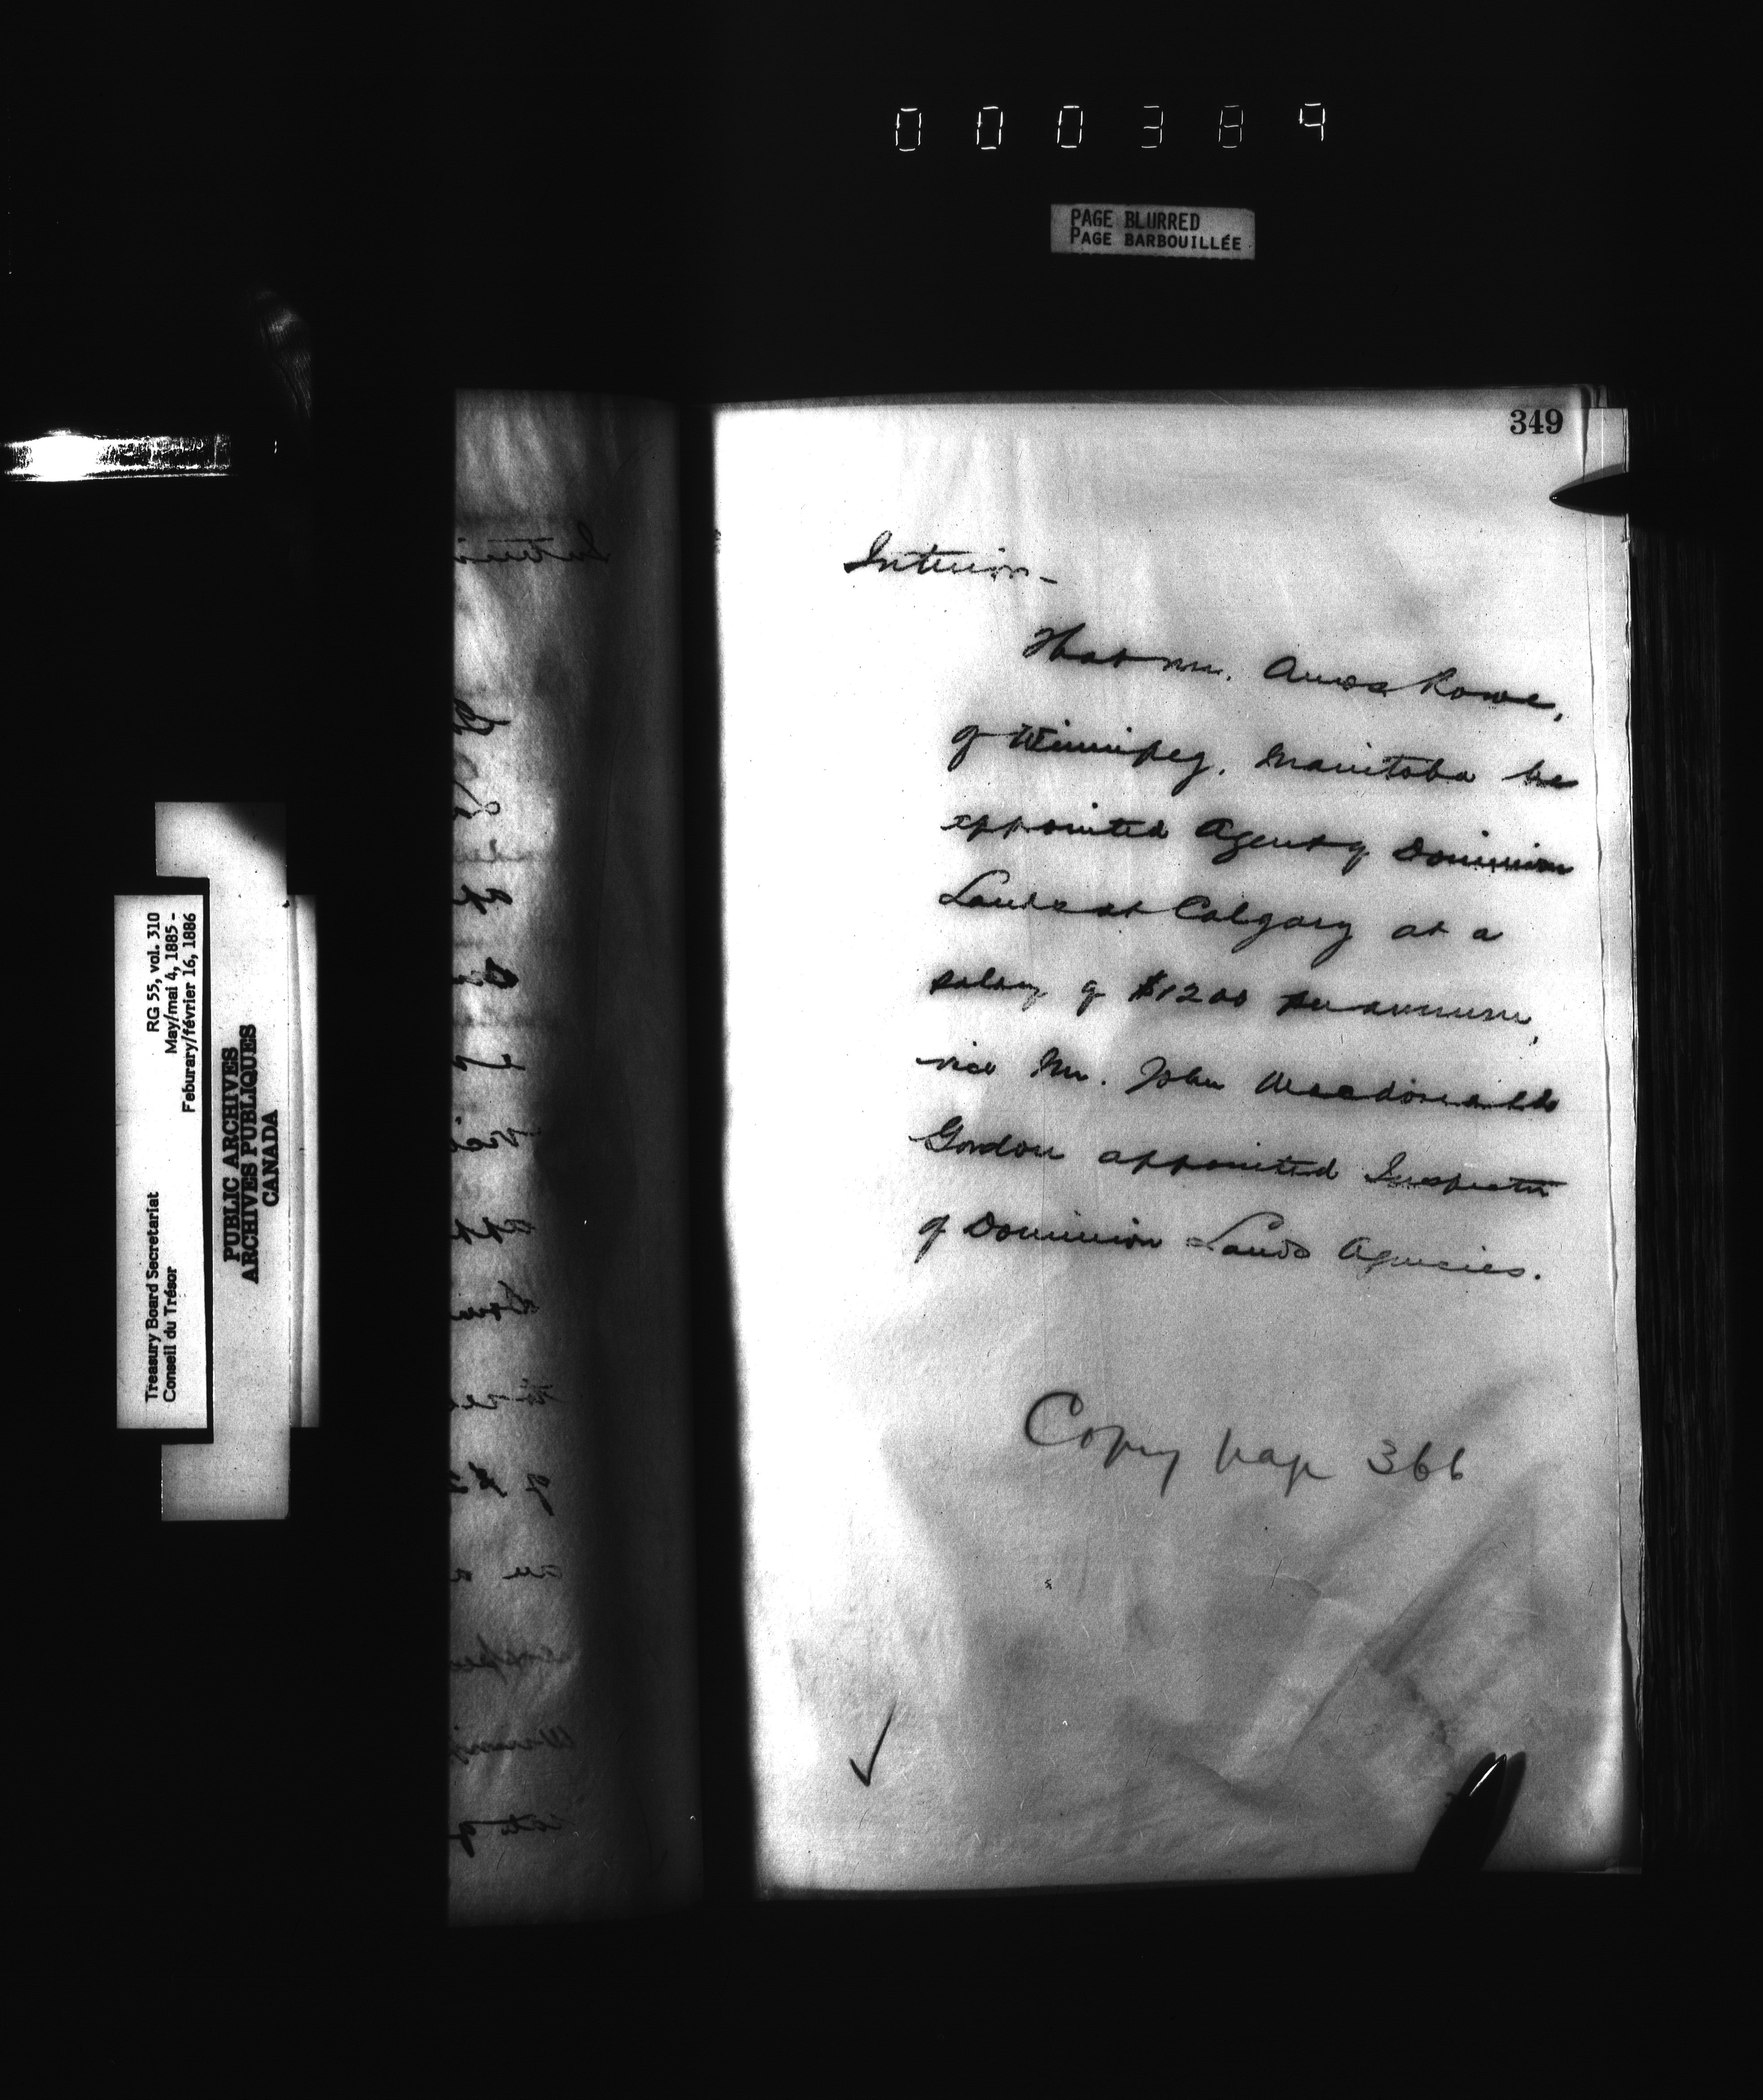 000389
PAGE BLURRED
PAGE BARBOUILLÉE
349
Interior-
That Mr. Amos Rowe,
of Winnipeg, Manitoba be
appointed Agent of Dominion
Lands at Calgary at a
salary of $1200 per annum,
vice Mr. John Macdonald
Gordon appointed Inspector
of Dominion Lands Agencies.
Copy page 366
Treasury Board Secretariat RG 55, vol. 310
Conseil du Trésor May/mai 4, 1885 -
Feburary/février 16, 1886
PUBLIC ARCHIVES
ARCHIVES PUBLIQUES
CANADA